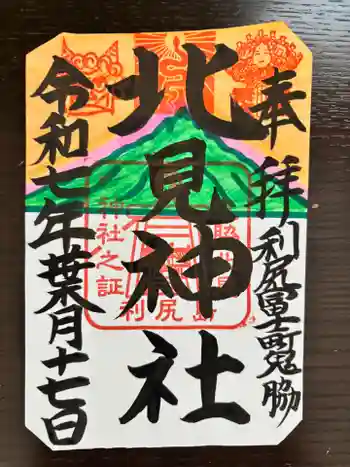 奉拝
利尻富士町鬼脇
北見神社
令和七年葉月十七日
神社之証
利尻島